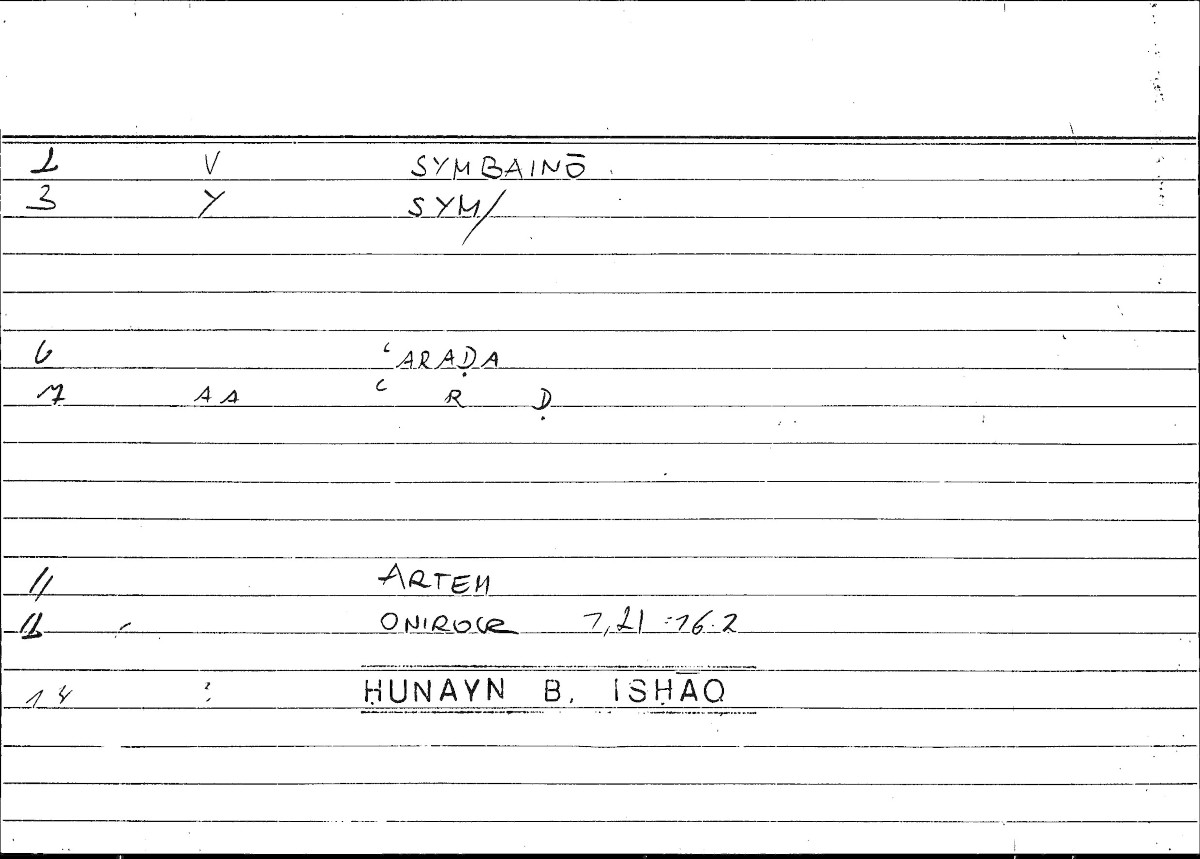 1 V SYMBAINŌ
3 Y SYM/
6 ʿARAḌA
7 AA ʿ R Ḍ
11 ARTEM
12 ONIROCR 1,21 :16.2
14 : ḤUNAYN B. ISḤĀQ